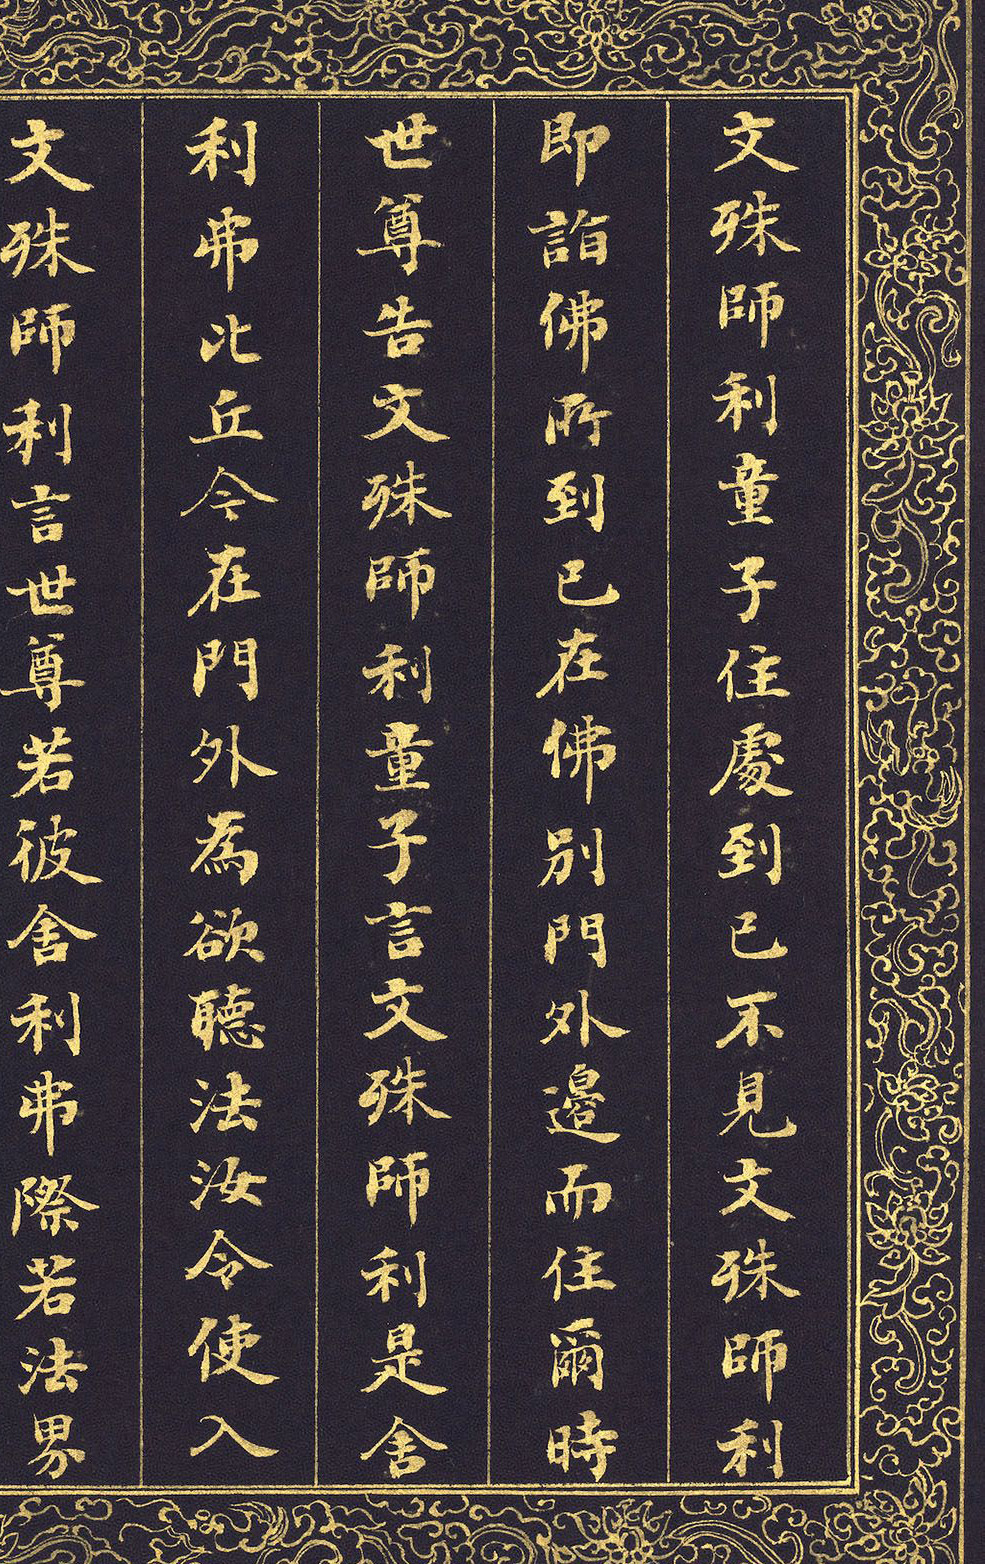 文殊師利童子住處到已不見文殊師利
即詣佛所到已在佛別門外邊而住爾時
世尊告文殊師利童子言文殊師利是舍
利弗比丘今在門外為欲聽法汝令使入
文殊師利言世尊若彼舍利弗際若法界